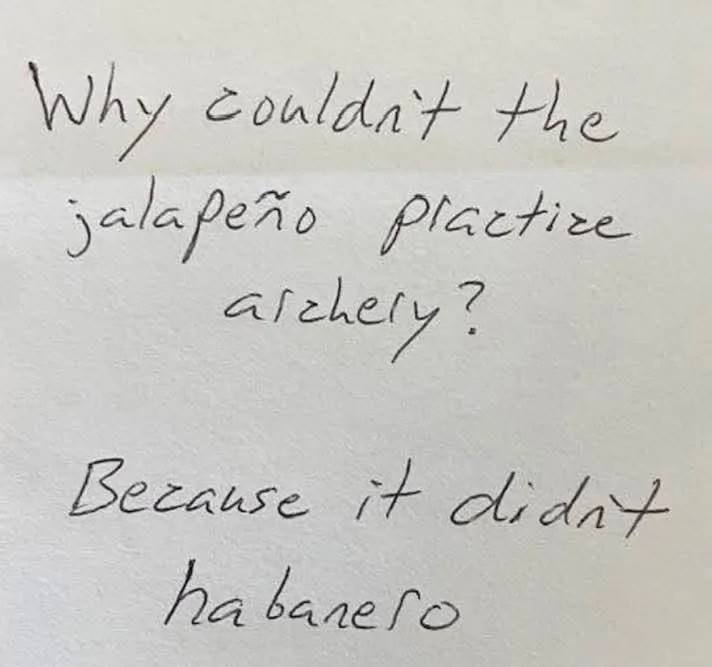 Why couldn't the
jalapeño practice
archery?
Because it didn't
habanero